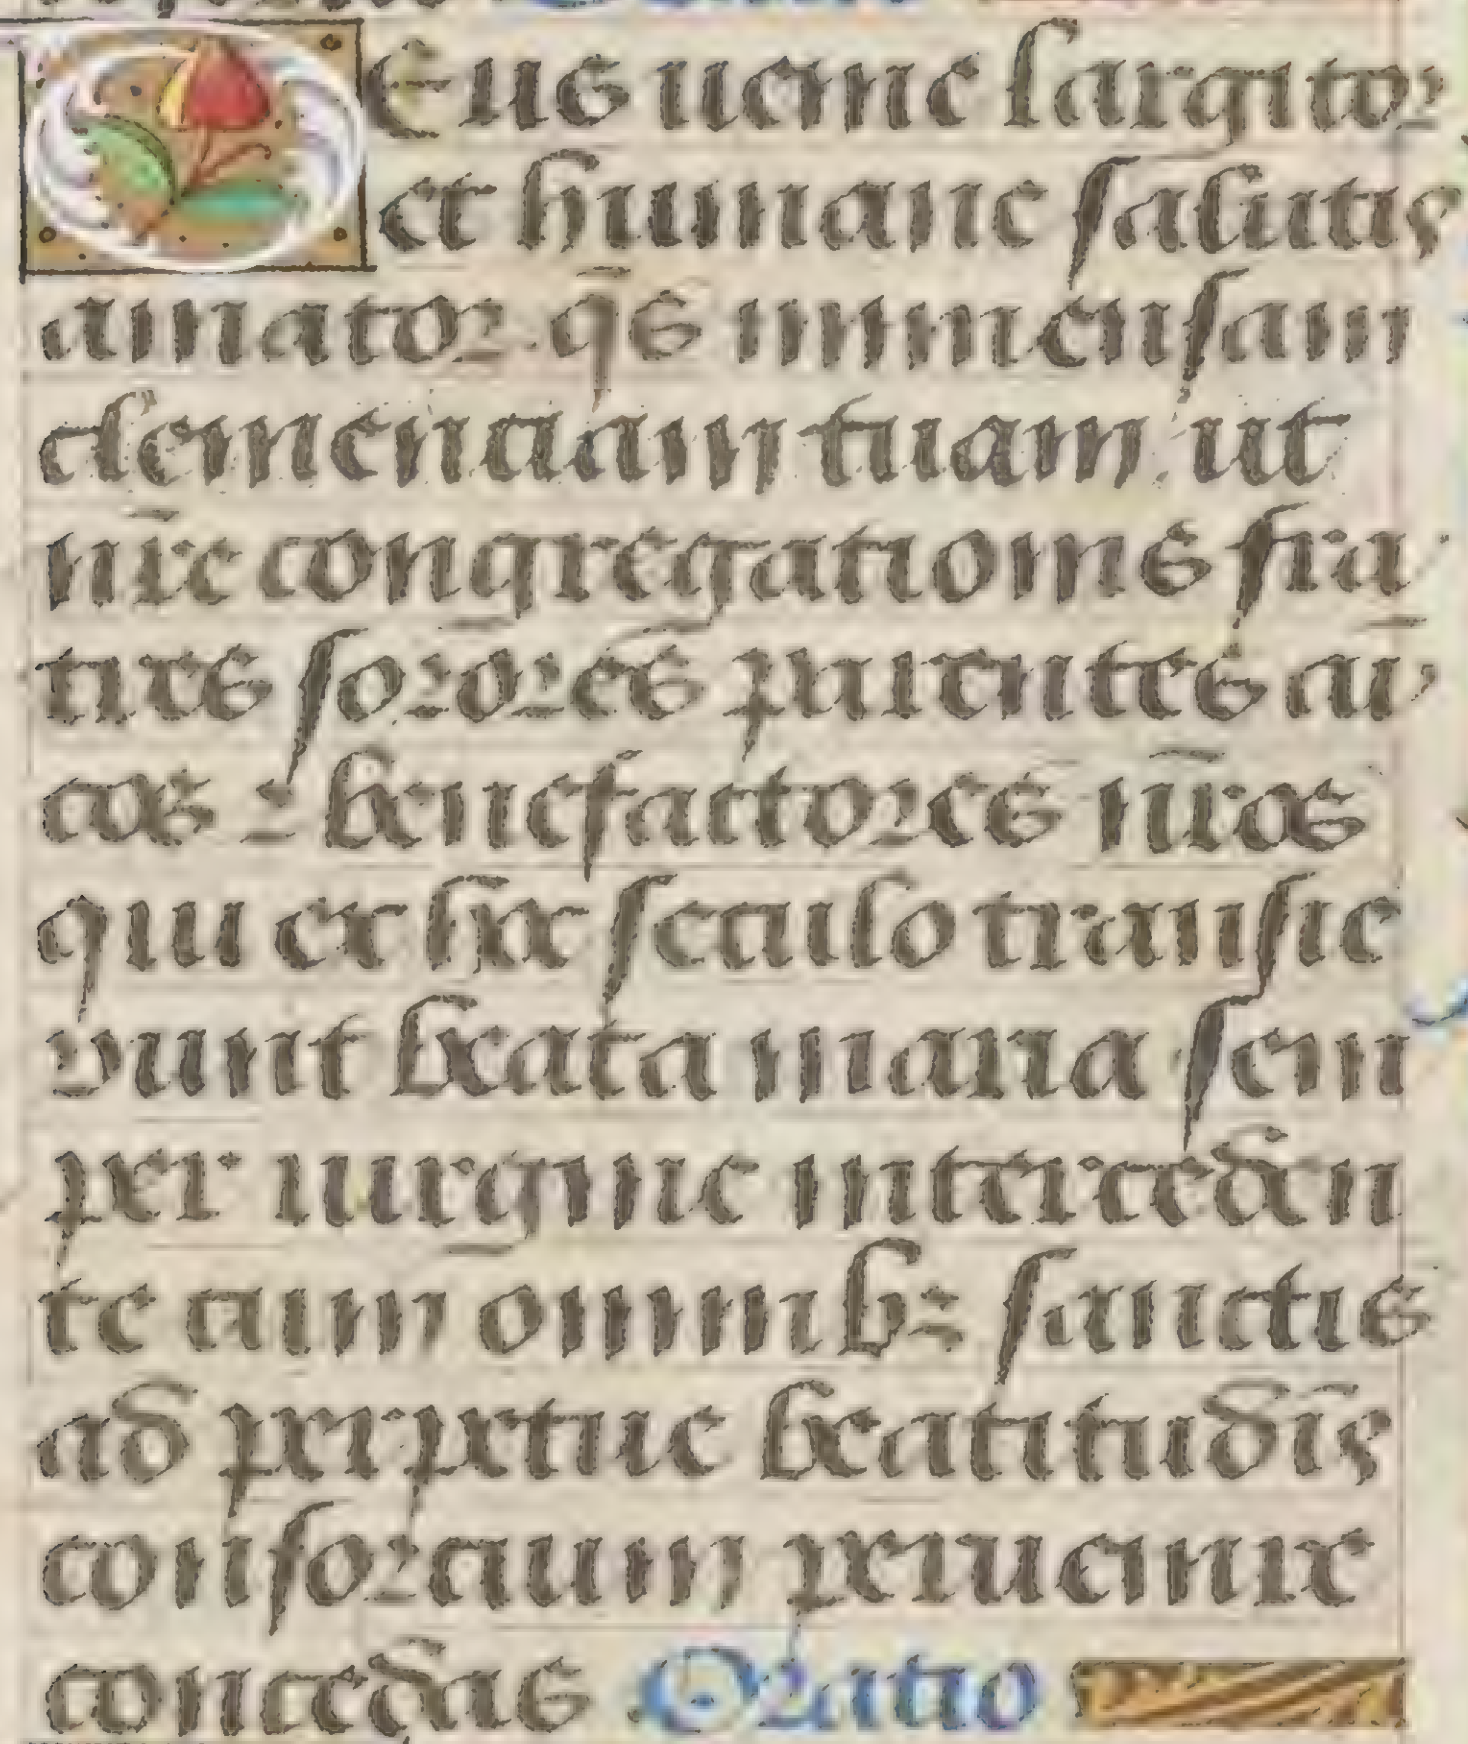 Deus uenie largitor
et humane salutis
amator q̄s immensam
clementiam tuam ut
nr̄e congregationis fra
tres sorores parentes ami
cos ⁊ benefactores nr̄os
qui ex hoc seculo transie
runt beata maria sem
per uirgine interceden
te cum omnibꝫ sanctis
ad perpetue beatitudīs
consortium peruenire
concedas Oratio